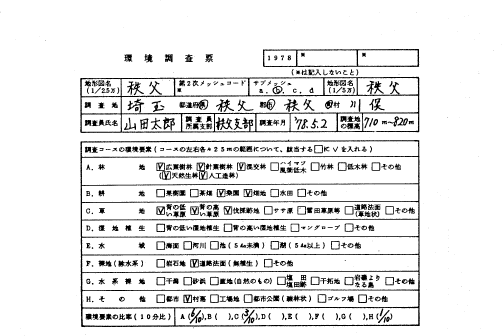 環境調査票
1978 ※ ※
(※は記入しないこと)
地形図名 (1/25万) 秩父 第2次メッシュコード ※ サブメッシュ a.b.c.d 地形図名 (1/5万) 秩父
調査地 埼玉 都道府県 秩父 郡市 秩父 町村 川俣
調査員氏名 山田太郎 調査員所属支部 秩父支部 調査年月 '78.5.2 調査地の標高 710m~820m
調査コースの環境要素(コースの左右各々25mの範囲について、該当する□にVを入れる)
A.林地 ☑広葉樹林 ☑針葉樹林 ☑混交林 □ハイマツ風衝低木 □竹林 □低木林 □その他
(☑天然生林 ☑人工造林)
B.耕地 □果樹園 □茶畑 ☑桑園 ☑畑地 □水田 □その他
C.草地 ☑背の低い草原 ☑背の高い草原 ☑伐採跡地 □ササ原 □皆田草原等 □道路法面(草地状) □その他
D.湿地植生 □背の低い湿地植生 □背の高い湿地植生 □マングローブ □その他
E.水域 □海面 □河川 □池(5ha未満) □湖(5ha以上) □その他
F.裸地(除水系) □岩石地 ☑道路法面(無植生) □その他
G.水系裸地 □干潟 □砂浜 □崖地(自然のもの) □塩田塩田跡 □干拓地 □岩礁よりなる島 □その他
H.その他 □都市 ☑村落 □工場地 □都市公園(疎林状) □ゴルフ場 □その他
環境要素の比率(10分比) A(6/10), B( ), C(3/10), D( ), E( ), F( ), G( ), H(1/10)